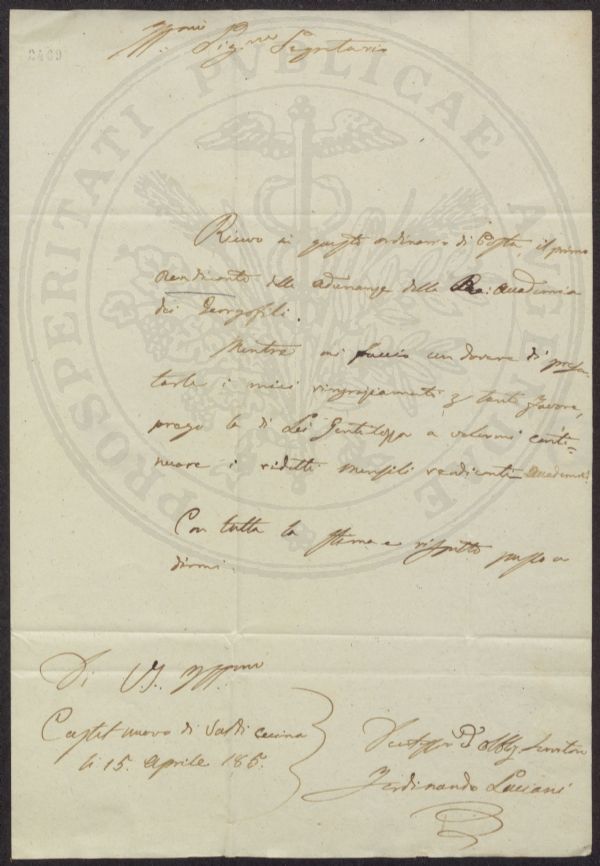 2469
Sig.re Segretario
PROSPERITATI PUBLICAE AUGENDAE
Ricevo in questo ordinario di Posta, il primo
Rendiconto delle adunanze della R. Accademia
dei Georgofili.
Mentre mi faccio un dovere di presen
tarle i miei ringraziamenti p tanto favore,
prego la di Lei Gentilezza a volermi conti=
nuare i ridetti mensili rendiconti
Con tutta la stima e rispetto passo a
dirmi.
Di V.S.
Castel nuovo di Val di Cecina
li 15. Aprile 185.
Servitore
Ferdinando Luciani